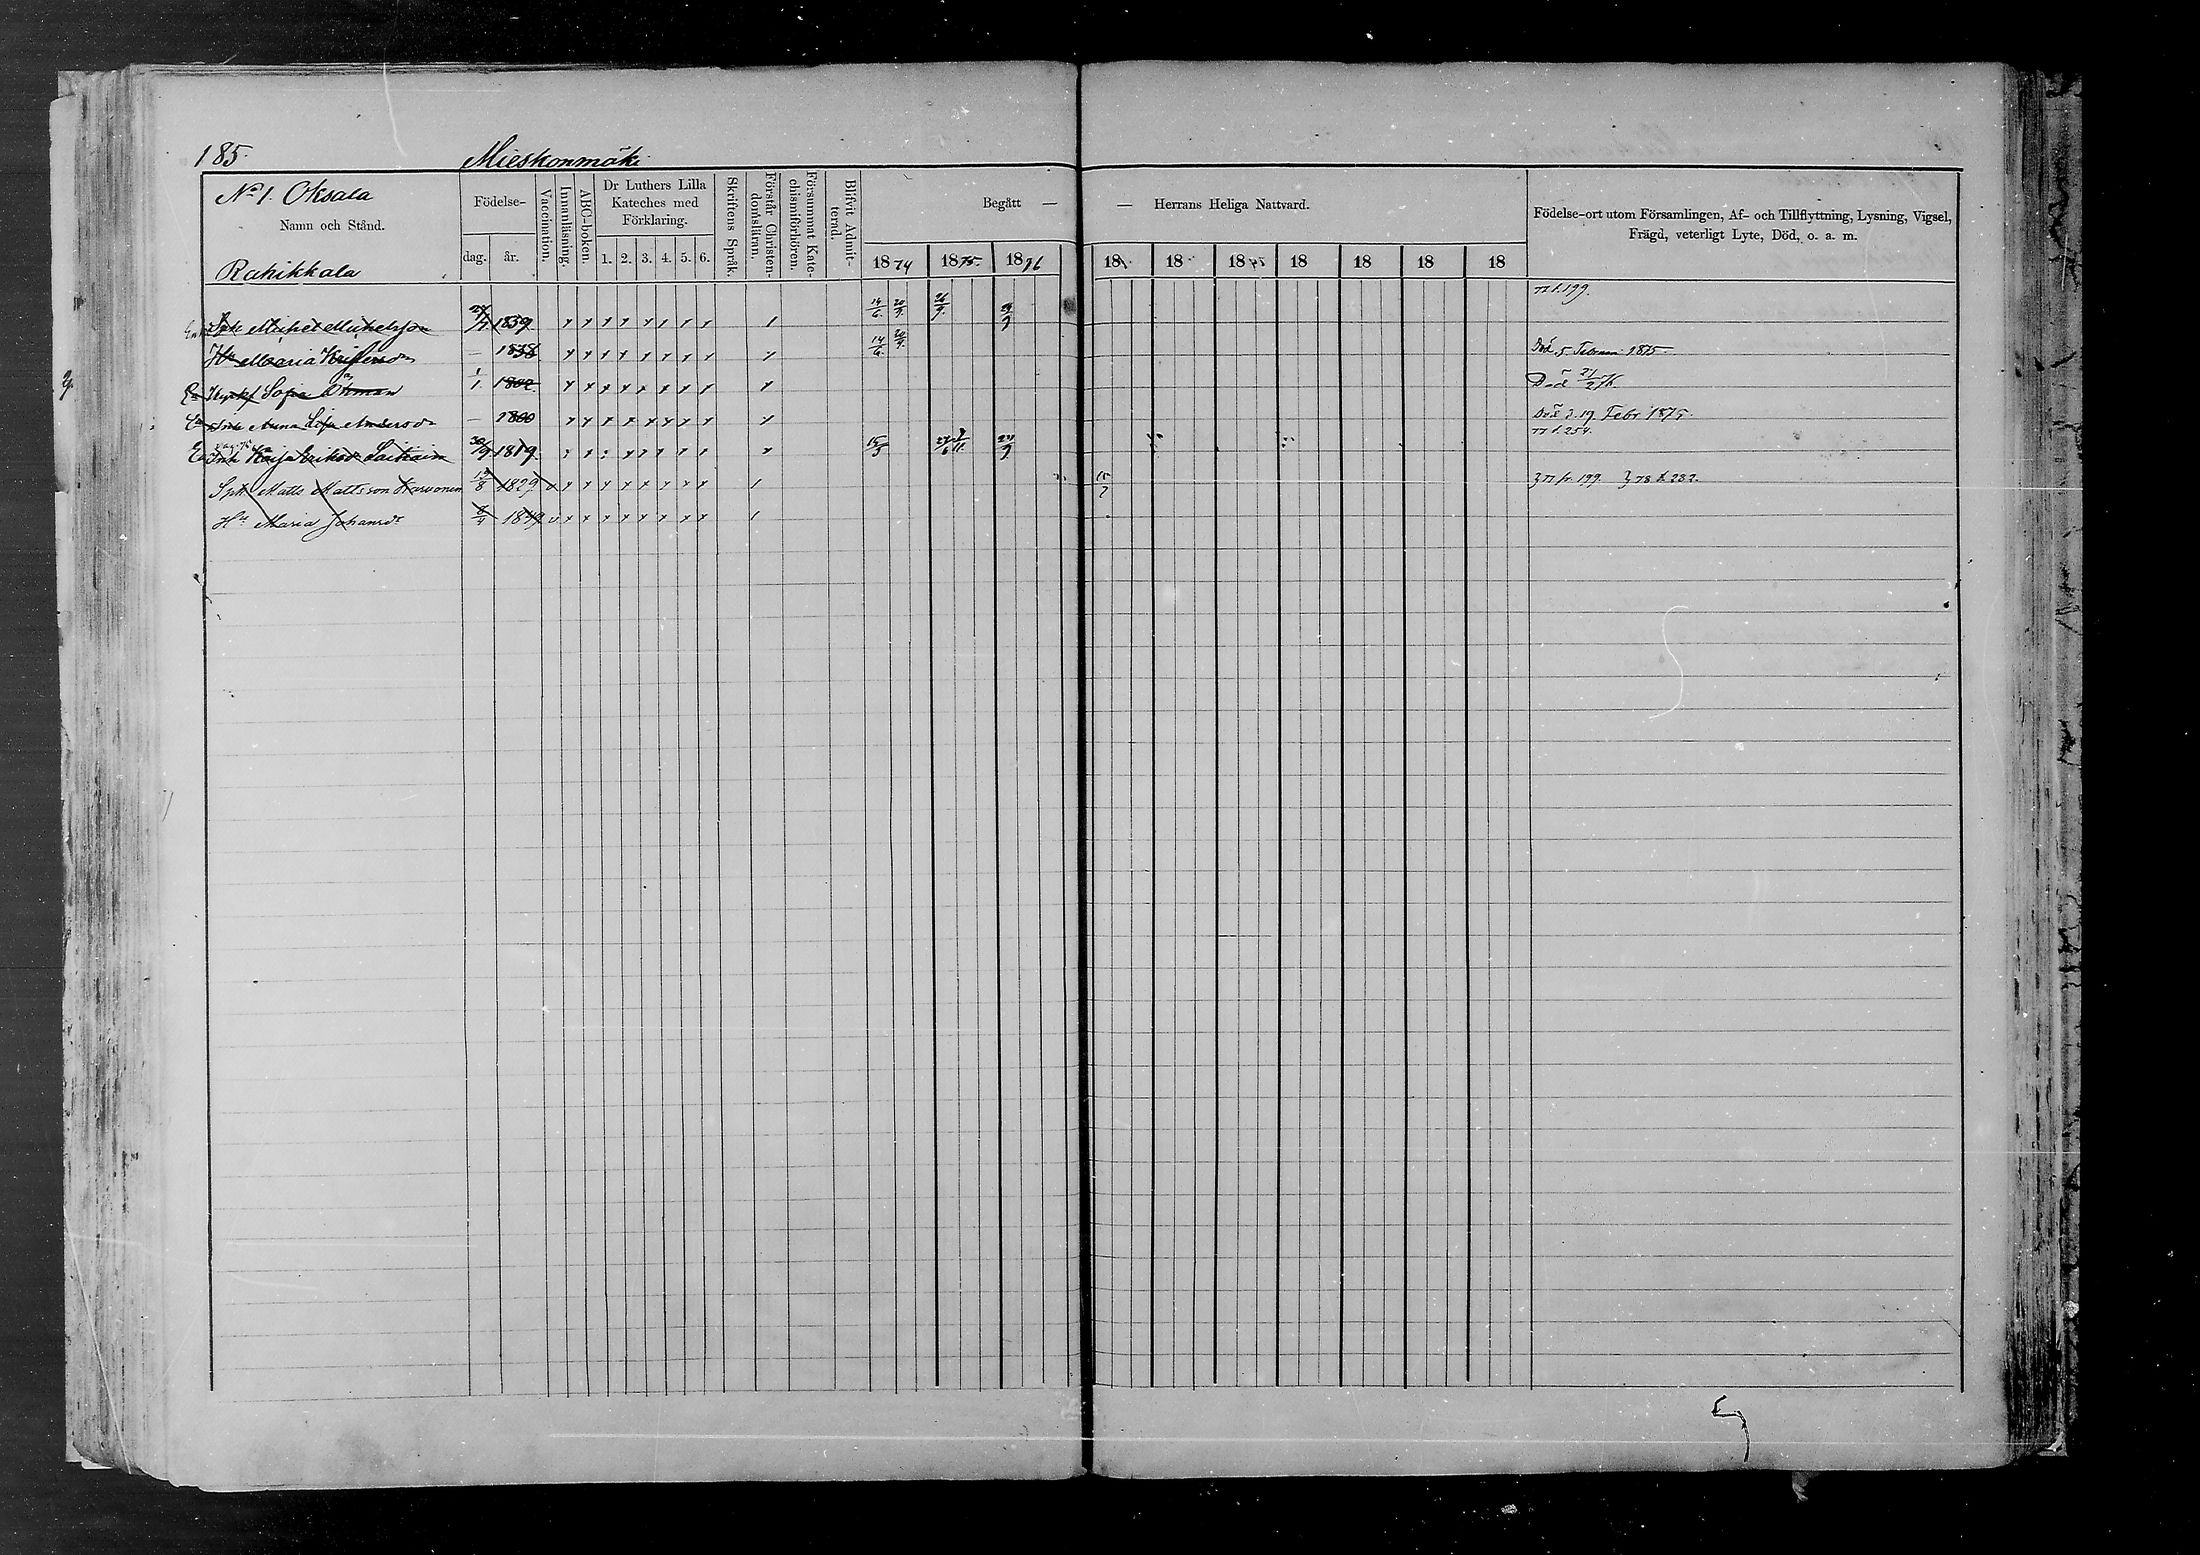 185. Mieskonmäki
No 1. Oksala
Namn och Stånd.
Rahikkala
Födelse-
dag. år.
Vaccination.
Innanläsning.
ABC-boken.
Dr Luthers Lilla
Kateches med
Förklaring.
1. 2. 3. 4. 5. 6.
Skriftens Språk.
Förstår Christen-
domsläran.
Försummat Kate-
chismiförhören.
Blifvit Admit-
terad.
Begått — — Herrans Heliga Nattvard.
1874 1875. 1876 18 18 18 18 18 18 18
Födelse-ort utom Församlingen, Af- och Tillflyttning, Lysning, Vigsel,
Frägd, veterligt Lyte, Död, o. a. m.
77 f. 199.
Michel Michelsson 1839 14/6. 20/9. 26/9.
Hu Maria — 1838 14/6. 20/9. Död 5 Februari 1875.
Ea Sofia Öhman 1/1. 1802. Död 21/2 76
Ea Anna Lisa Andersdr — 1800 Död d. 19 Febr 1875.
77 f. 254.
Ea Kaisa Eriksdr 30/9 1819
Matts Mattsson Karvonen 1829 77 fr 199 78 t. 232.
Hu Maria Johansdr 1849